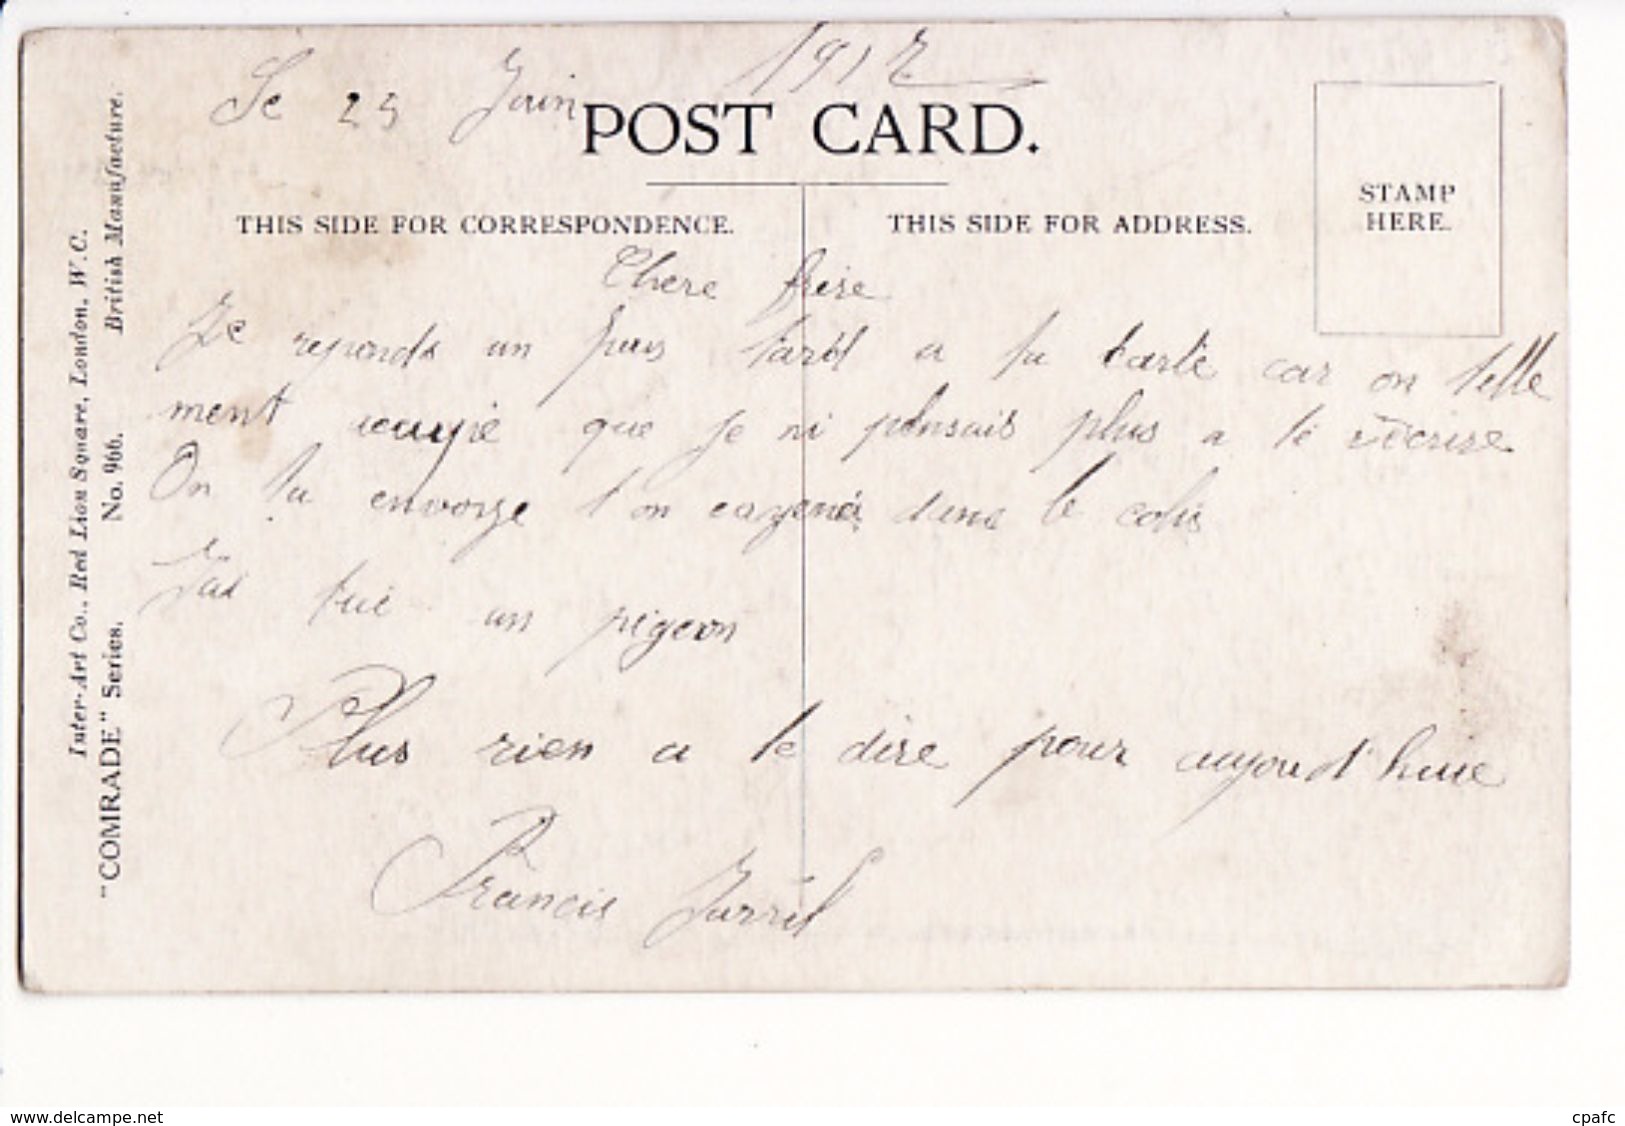 Le 25 Juin 1917
POST CARD.
THIS SIDE FOR CORRESPONDENCE.
THIS SIDE FOR ADDRESS.
STAMP
HERE.
Chere frere
Je reponds un peus tard a ta carte car on telle
ment ocupé que je ni pensais plus a te réecrire
On ta envoye t'on dans le colis
Jai tué un pigeon
Plus rien a te dire pour aujourd'huie
Francis
Inter-Art Co., Red Lion Square, London, W.C.
British Manufacture.
"COMRADE" Series. No. 966.
www.delcampe.net
cpafc